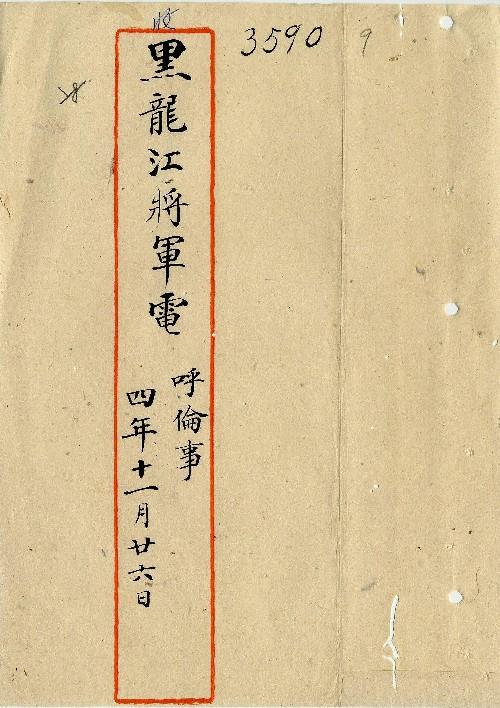 收
3590
9
黑龍江將軍電
呼倫事
四年十一月廿六日